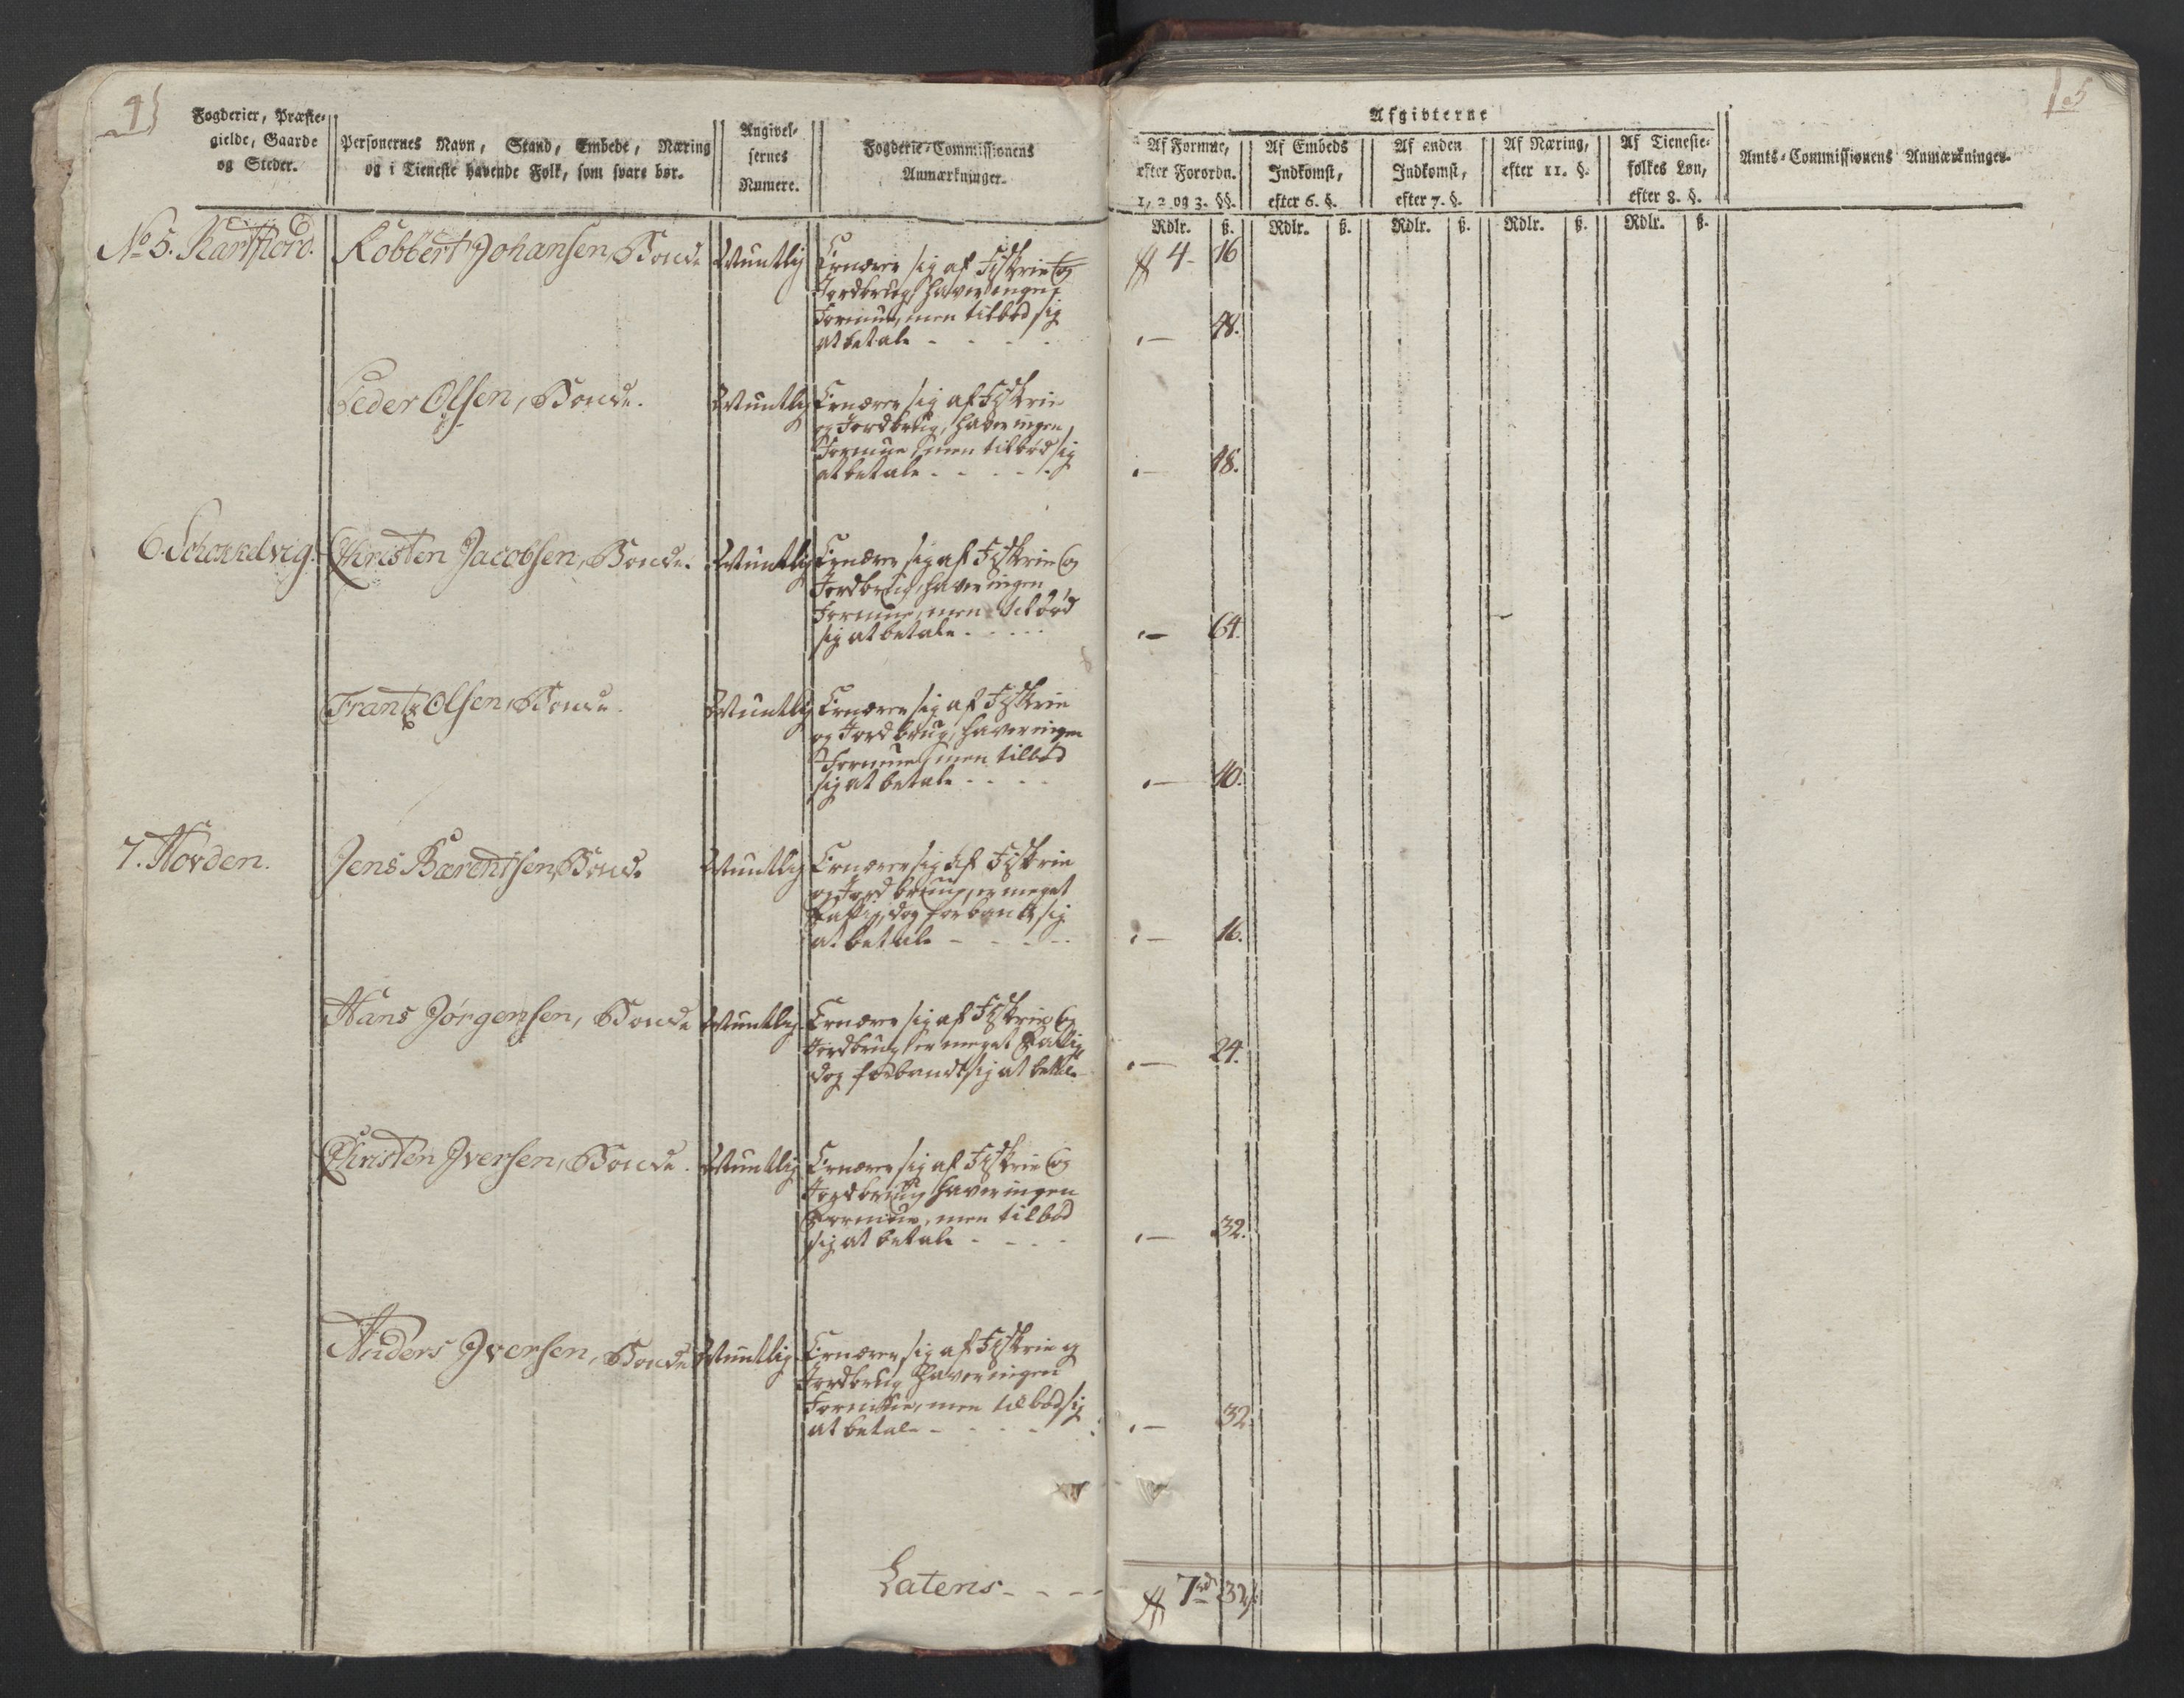 4
Fogderier, Præste-
gielde, Gaarde
og Steder.
Personernes Navn, Stand, Embede, Næring
og i Tieneste havende Folk, som svare bør.
Angivel-
sernes
Numere.
Fogderie-Commissionens
Anmærkninger.
No 5. Kartfiord.
Robbert Johansen, Bonde
Muntlig
Ernærer sig af Fiskrie og
Jordbrug, haver ingen
Formue, men tilbød sig
at betale - - - -
Peder Olsen, Bonde.
Muntlig
Ernærer sig af Fiskrie
og Jordbrug, haver ingen
Formue, men tilbød sig
at betale - - - - -
6. Schonkelvig.
Christen Jacobsen, Bonde.
Muntlig
Ernærer sig af Fiskrie og
Jordbrug, haver ingen
Formue, men tilbød
sig at betale - - - -
Frantz Olsen, Bonde.
Muntlig
Ernærer sig af Fiskrie
og Jordbrug, haver ingen
Formue, men tilbød
sig at betale - - - -
7. Norden.
Jens Barentsen, Bonde
Muntlig
Ernærer sig af Fiskrie
og Jordbrug, er meget
Fattig, dog forbandt sig
at betale - - - -
Hans Jørgensen, Bonde
Muntlig.
Ernærer sig af Fiskrie og
Jordbrug er meget Fattig
dog forbandt sig at betale
Christen Iversen, Bonde.
Muntlig
Ernærer sig af Fiskrie og
Jordbrug haver ingen
Formue, men tilbød
sig at betale - - - -
Anders Iversen, Bonde
Muntlig
Ernærer sig af Fiskrie og
Jordbrug haver ingen
Formue, men tilbød sig
at betale - - - -
Lateris - - - -
5
Afgivterne
Af Formue,
efter Forordn.
1, 2 og 3. §§.
Af Embeds
Indkomst,
efter 6. §.
Af anden
Indkomst,
efter 7. §.
Af Næring,
efter 11. §.
Af Tieneste-
folkes Løn,
efter 8. §.
Amts-Commissionens Anmærkninger.
Rdlr. ß. Rdlr. ß. Rdlr. ß. Rdlr. ß. Rdlr. ß.
4 - 16
- 48.
- 48.
- 64.
- 40.
- 16.
- 24.
- 32.
- 32.
7 rd 32 ß